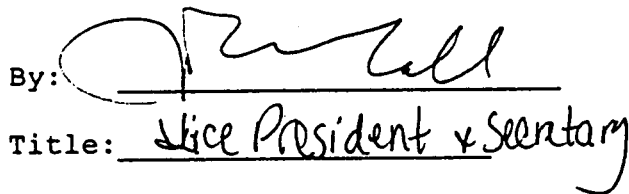 By:
Title: Vice President & Secretary